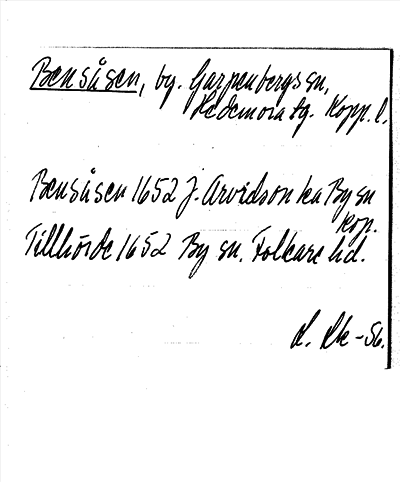 Bensåsen, by. Garpenbergs sn,
Hedemora tg. Kopp. l.
Bensåsen 1652 J. Arvidson ka By sn
kop.
Tillhörde 1652 By sn. Folkare hd.
-56.